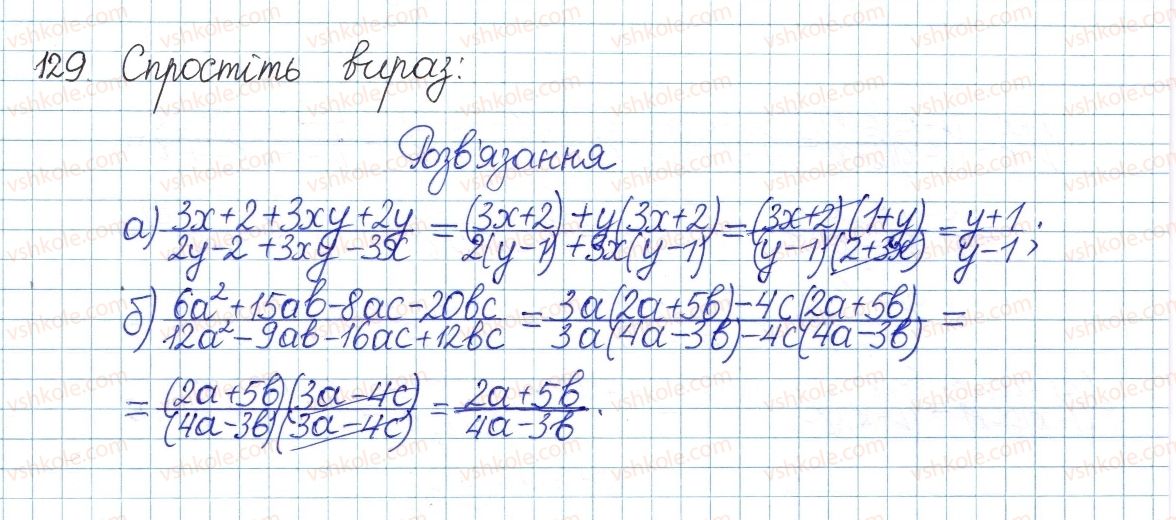 129. Спростіть вираз:
Розв'язання
а) (3x+2+3xy+2y)/(2y-2+3xy-3x) = ((3x+2)+y(3x+2))/(2(y-1)+3x(y-1)) = ((3x+2)(1+y))/((y-1)(2+3x)) = (y+1)/(y-1);
б) (6a²+15ab-8ac-20bc)/(12a²-9ab-16ac+12bc) = (3a(2a+5b)-4c(2a+5b))/(3a(4a-3b)-4c(4a-3b)) =
= ((2a+5b)(3a-4c))/((4a-3b)(3a-4c)) = (2a+5b)/(4a-3b).
vshkole.com